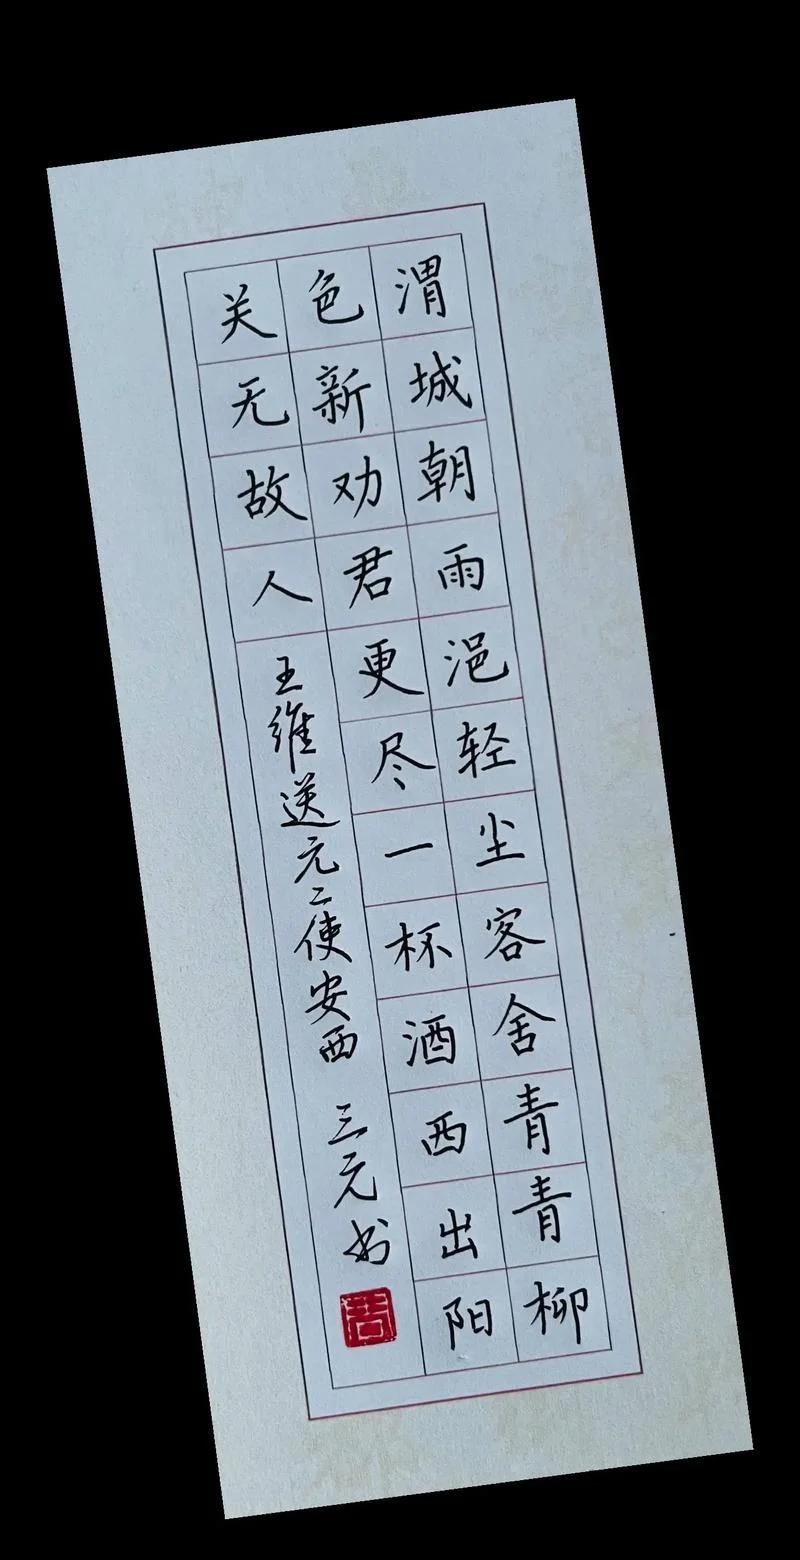 渭城朝雨浥轻尘客舍青青柳
色新劝君更尽一杯酒西出阳
关无故人
王维送元二使安西 三元书